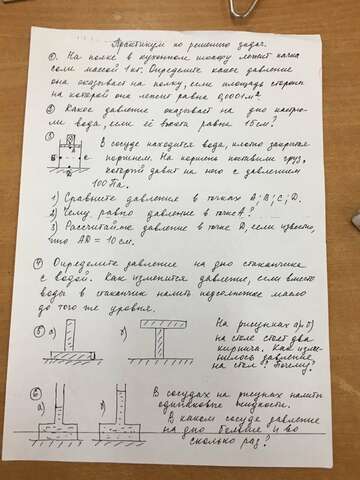 Практикум по решению задач.
① На полке в кухонном шкафу лежит пачка
соли массой 1 кг. Определите какое давление
она оказывает на полку, если площадь стороны
на которой она лежит равна 0,0001 м².
② Какое давление оказывает на дно кастрю-
ли вода, если её высота равна 15 см?
③
В сосуде находится вода, плотно закрытая
поршнем. На поршень поставили груз,
который давит на него с давлением
100 Па.
1) Сравните давление в точках A; B; C; D.
2) Чему равно давление в точке A?
3) Рассчитайте давление в точке D, если известно,
что AD = 10 см.
④ Определите давление на дно стаканчика
с водой. Как изменится давление, если вместо
воды в стаканчик налить подсолнечное масло
до того же уровня.
⑤ а) б)
На рисунках а) и б)
на столе стоят два
кирпича. Как изме-
нилось давление
на стол? Почему?
⑥ а) б)
В сосудах на рисунках налиты
одинаковые жидкости.
В каком сосуде давление
на дно больше и во
сколько раз?